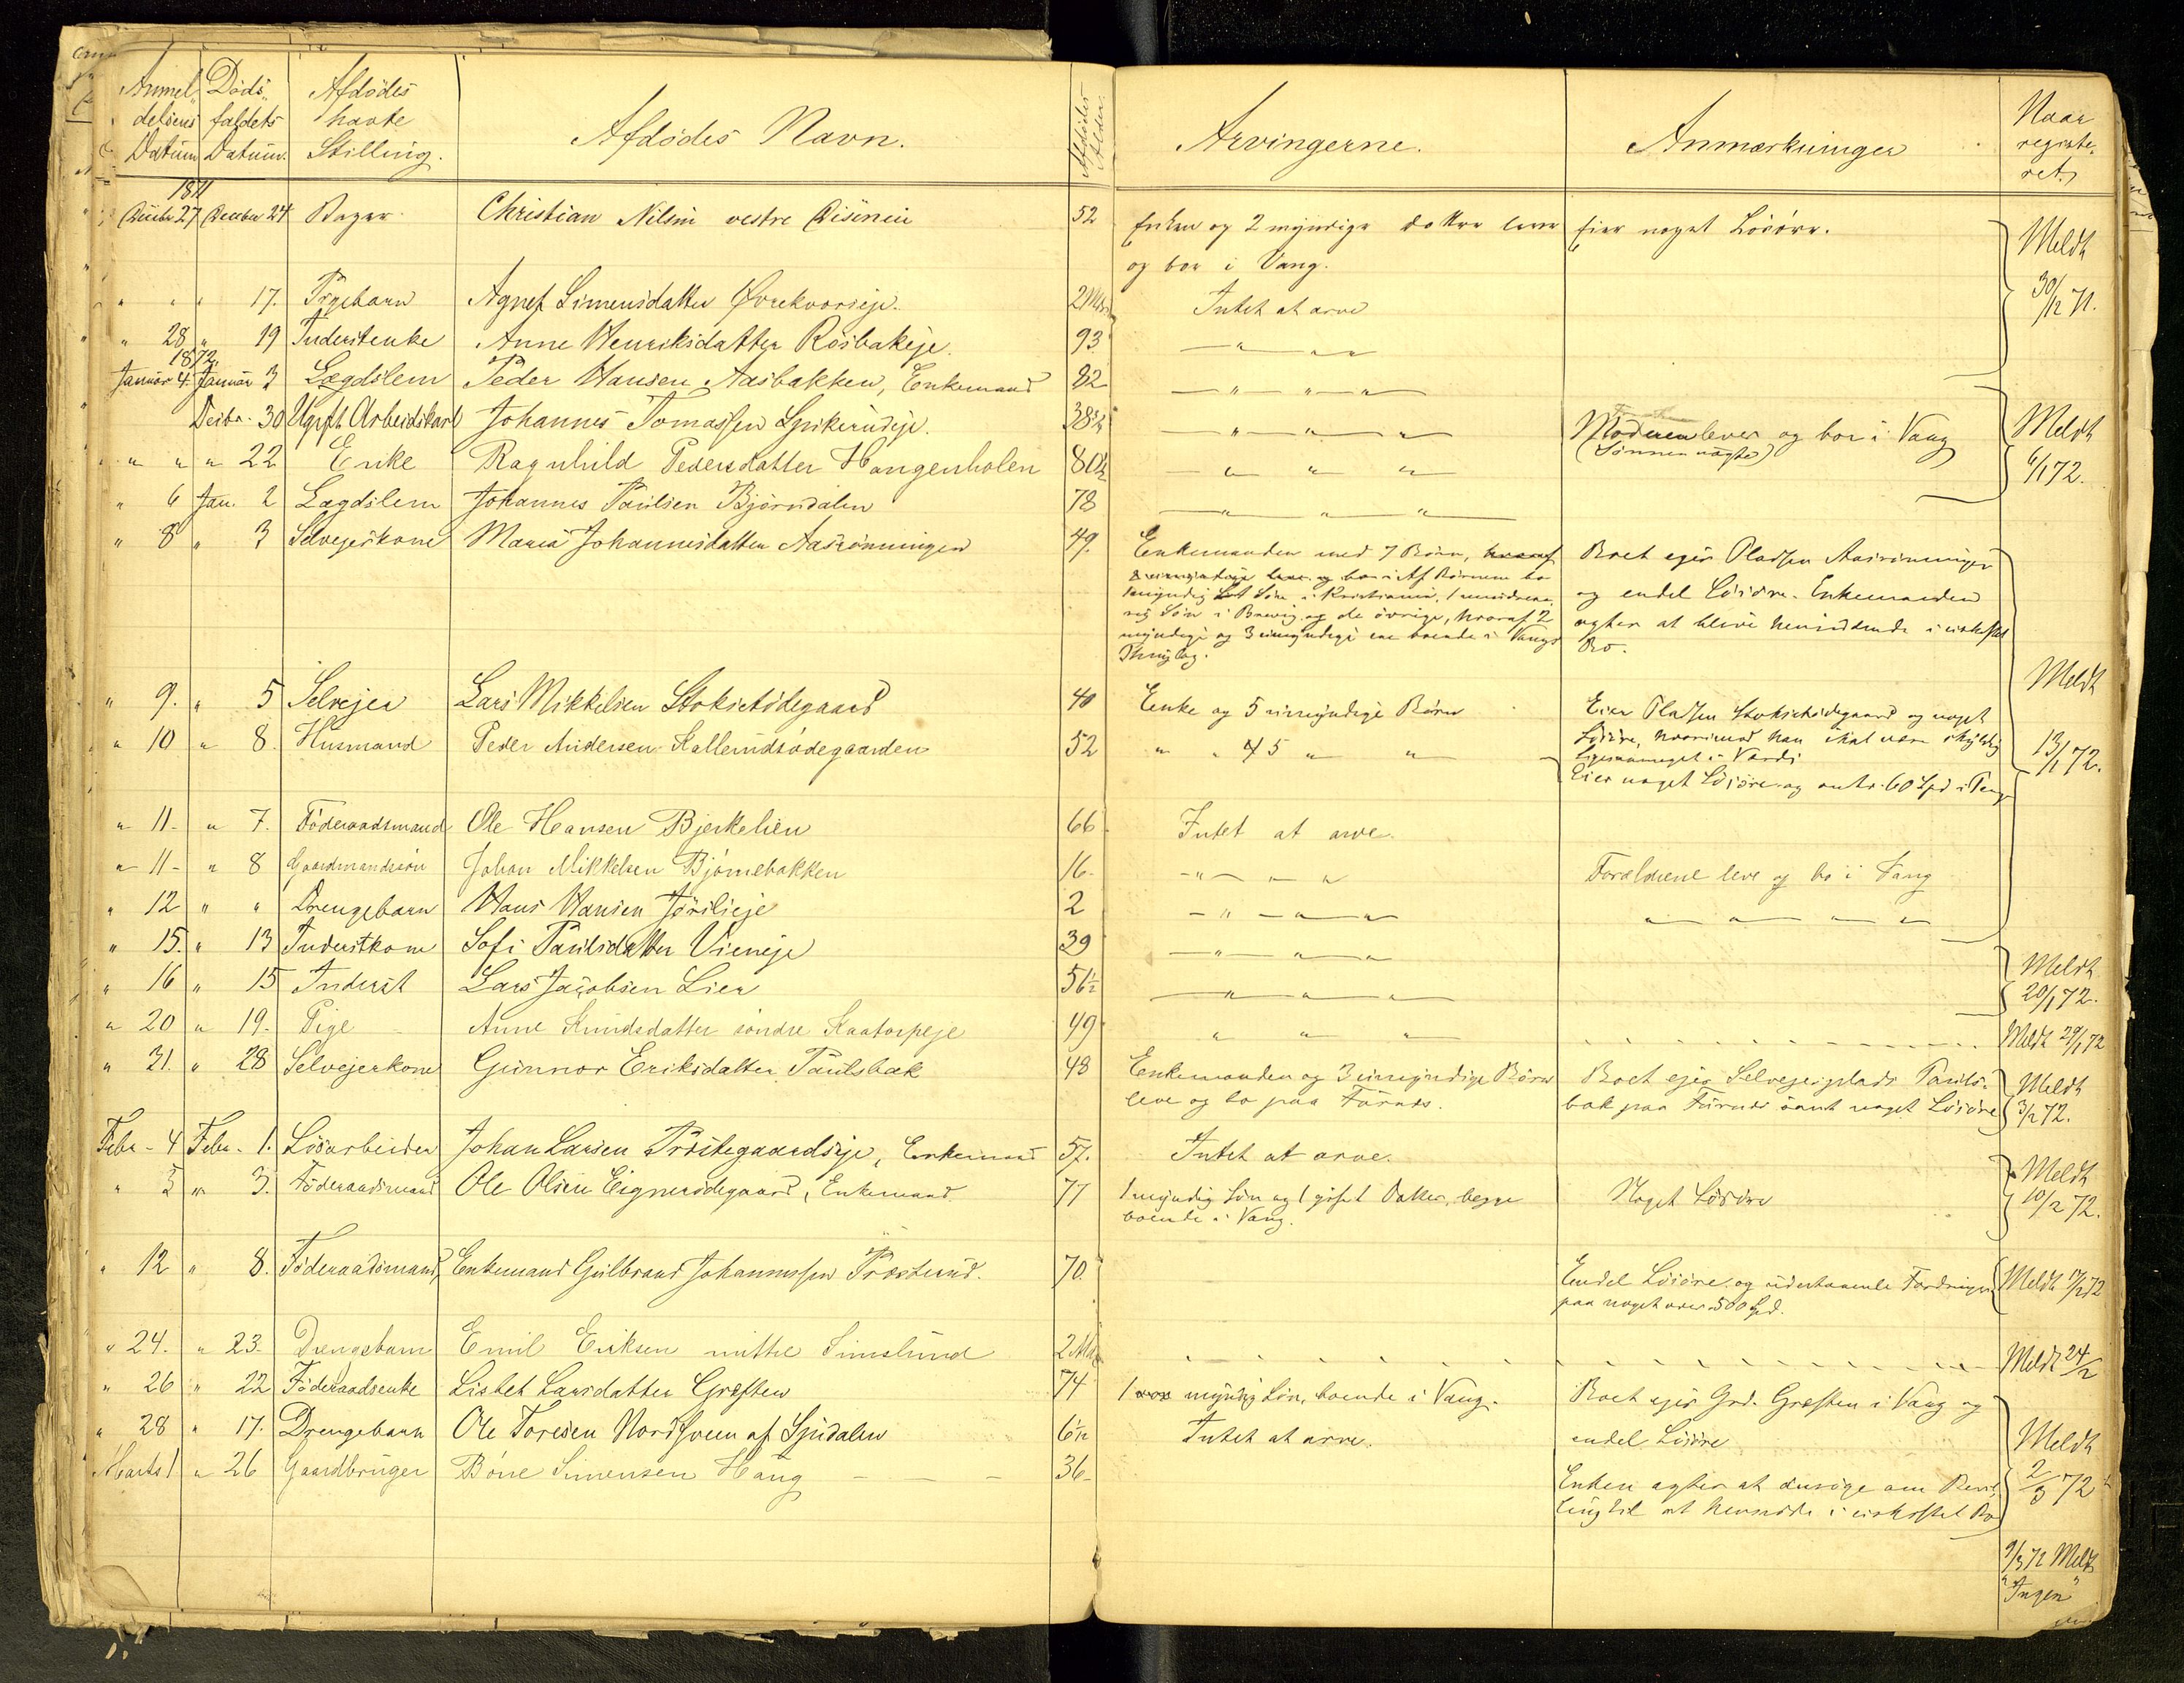 Anmel„ Döds„ Afdødes
delsens faldets havte Afdødes Navn. Afdødes Alder. Arvingerne. Anmærkninger Naar registe„
Datum Datum. Stilling. ret.
1871
Decbr 27 December 24 Bager Christian Nilsen vestre Disenein 52 Enken og 2 myndige døttre leve Eier noget Løsøre. Meldt
og bor i Vang. 30/12 71.
" " " 17. Pigebarn Agnet Simensdatter Øvrekvorseje. 2 Mdr Intet at arve
" 28 " 19 Inderstenke Anne Henriksdatter Rosbakeje 93 — " — " — "
1872
Januar 4. Januar 3 Lægdslem Peder Hansen Aasbakken, Enkemand 82 — " — " — "
Decbr. 30 Ugift Arbeidskarl Johannes Tomassen Spikerudeje. 38¾ — " — " — " Moderen lever og bor i Vang Meldt
" " " 22 Enke Ragnhild Pedersdatter Haugenholen 80½ — " — " — " (Sønnen nægte) 6/1 72.
" 6 Jan. 2 Lægdslem Johannes Paulsen Bjørndalen 78 — " — " — "
" 8 " 3 Selvejerkone Maria Johannesdatter Aasrønningen 49. Enkemanden med 7 Børn, hvoraf Boet ejer Pladsen Aasrønningen
Af Børnene bo og endel Løsøre. Enkemanden
1 myndig Søn i Kristiania, 1 mindreaa„ agter at blive hensiddende i uskiftet
rig Søn i Brevig og de øvrige, hvoraf 2 Bo.
myndige og 3 umyndige ere boende i Vangs
Thinglag.
" 9. " 5 Selvejer Lars Mikkelsen Stoksetødegaard 40 Enke og 5 umyndige Børn Eier Pladsen Stoksetødegaard og noget Meldt
" 10 " 8. Husmand Peder Andersen Kallerudsødegaarden 52 " " 5 " " Løsøre, hvorimod han skal være skyldig 13/1 72.
ligesaameget i Værdi
Eier noget Løsøre og antr. 60 Spd i Penge
" 11 - " 7. Föderaadsmand Ole Hansen Bjerkelien 66 Intet at arve.
" 11 - " 8 Gaardmandssøn Johan Mikkelsen Bjørnebakken 16 - " - " - " Forældrene leve og bo i Vang
" 12 " " Drengebarn Hans Hansen Jørilieje 2 - " - " - " " — " — " — "
" 15. " 13 Inderstkone Sofi Paulsdatter Vieneje 39 — " — " — "
" 16 " 15 Inderst Lars Jacobsen Lier 56½ — " — " — " Meldt 20/1 72.
" 20 " 19. Pige Anne Knudsdatter söndre Kaatorpeje 49 " " " Meldt 29/1 72
" 31. " 28 Selvejerkone Gunnor Eriksdatter Paulsbak 48 Enkemanden og 3 umyndige Børn Boet ejer Selvejerplads Pauls- Meldt
leve og bo paa Furnæs. bak paa Furnæs samt noget Løsøre 3/2 72.
Febr - 4 Febr - 1. Løsarbeider Johan Larsen Præstegaardseje, Enkemand 57. Intet at arve.
" 5 " 3. Föderaadsmand Ole Olsen Eignerødegaard, Enkemand 77 1 myndig Søn og 1 gift Datter, begge Noget Løsøre Meldt
boende i Vang. 10/2 72.
" 12 " 8. Föderaadsmand, Enkemand Gulbrand Johannessen Præstrud. 70. Endel Løsøre og udestaaende Fordringer Meldt 17/2 72
paa noget over 500 Spd.
" 24. " 23. Drengebarn Emil Eriksen mittre Simslund 2 Mdr Meldt 24/2
" 26 " 22 Föderaadsenke Lisbet Larsdatter Græften 74 1 myndig Søn, boende i Vang. Boet ejer Grd. Græften i Vang og
" 28 " 17. Drengebarn Ole Toresen Nordsveen af Spidalen 6½ Intet at arve. endel Løsøre Meldt
Marts 1 " 26 Gaardbruger Böne Simensen Haug 36 Enken agter at ansöge om Bevil„ 2/3 72
ling til at hensidde i uskiftet Bo
9/3 72 Meldt
"Ingen"